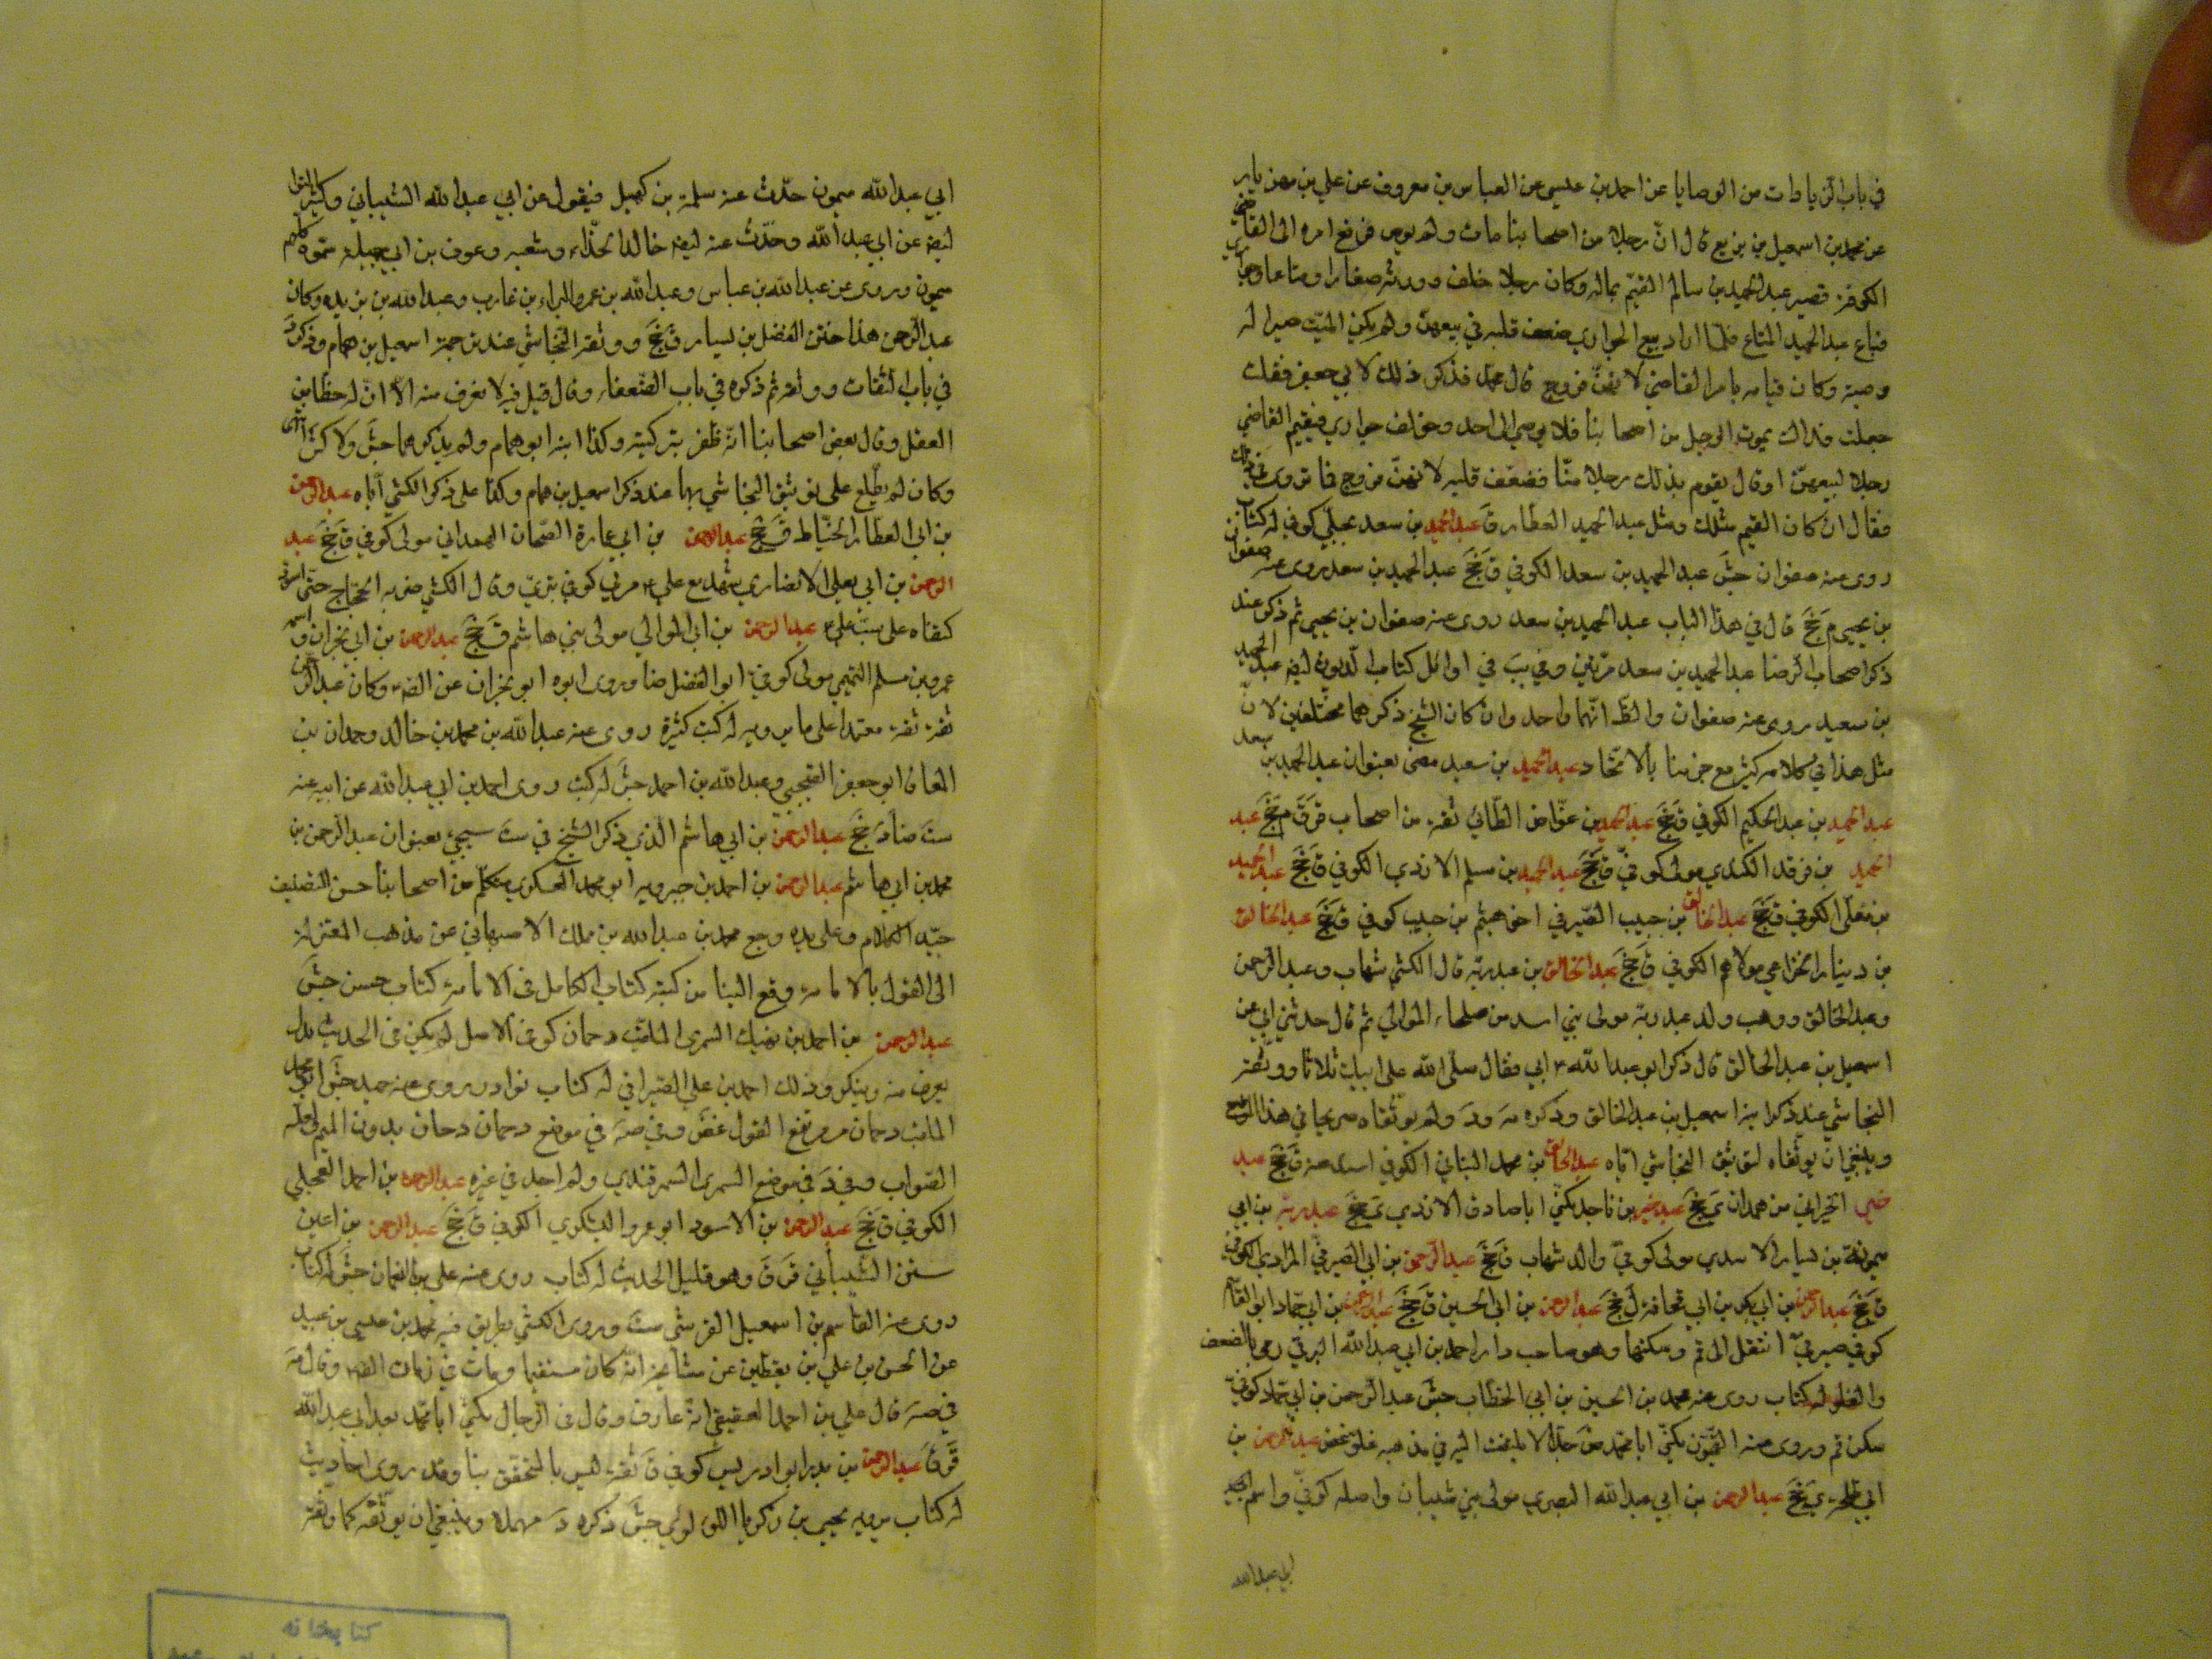 في باب الزيادات من الوصايا عن احمد بن عيسى عن العباس بن معروف عن علي بن مهزيار
عن محمد بن اسمعيل بن بزيع قال انّ رجلا من اصحابنا مات ولم يوص فرفع امره الى القاضي
الكوفة فصير عبد الحميد بن سالم القيّم بماله وكان رجلا خلف وورثة صغارا ومتاعا وجواري
فباع عبد الحميد المتاع فلمّا اراد بيع الجواري ضعف قلبه في بيعهنّ ولم يكن الميّت صير اليه
وصيته وكان قيامه بامر القاضي لانهنّ فروج قال محمد فذكر ذلك لابي جعفر فقلت
جعلت فداك يموت الرجل من اصحابنا فلا يوصي الى احد وخلف جواري فيقيم القاضي
رجلا لبيعهنّ او قال يقوم بذلك رجلا منّا فضعف قلبه لانهنّ فروج فما ترى في ذلك
فقال ان كان القيم مثلك ومثل عبد الحميد العطار ق عبد الحميد بن سعد بجلّي كوفي له كتاب
روى عنه صفوان جش عبد الحميد بن سعد الكوفي ق جخ عبد الحميد بن سعد روى عنه صفوان
بن يحيى م جخ قال في هذا الباب عبد الحميد بن سعد روى عنه صفوان بن يحيى ثم ذكر عند
ذكر اصحاب الرضا عبد الحميد بن سعد مرّتين وفي يب في اوائل كتاب الديون ايضا عبد الحميد
بن سعيد روى عنه صفوان والظ انّهما واحد وان كان الشيخ ذكرهما مختلفين لانّ
مثل هذا في كلامه كثير مع جزمنا بالاتحاد عبد الحميد بن سعيد مضى بعنوان عبد الحميد بن سعد
عبد الحميد بن عبد الحكيم الكوفي ق جخ عبد الحميد بن عوّاض الطّائي ثقة من اصحاب قر ق م جخ عبد
الحميد بن فرقد الكندي مولى كوفيّ ق جخ عبد الحميد بن مسلم الازدي الكوفي ق جخ عبد الحميد
بن معلّى الكوفي ق جخ عبد الخالق بن حبيب الصّيرفي اخو هيثم بن حبيب كوفي ق جخ عبد الخالق
بن دينار الخزاعي مولاهم الكوفي ق جخ عبد الخالق بن عبد ربّه قال الكشي شهاب وعبد الرحمن
وعبد الخالق ووهب ولد عبد ربّه مولى بني اسد من صلحاء الموالي ثم قال حدثني ابي عن
اسمعيل بن عبد الخالق قال ذكر ابو عبد الله ع ابي فقال صلّى الله على ابيك ثلاثا ووثّقه
النجاشي عند ذكر ابنه اسمعيل بن عبد الخالق وذكره صه ود ولم يوثّقاه صريحا في هذا الموضع
وينبغي ان يوثّقاه لتوثيق النجاشي ايّاه عبد الخالق بن محمد البناني الكوفي اسند عنه ق جخ عبد
خير الخيراني من همدان ي جخ عبد خير بن ناجد يكنّى ابا صادق الازدي ي جخ عبد ربّه بن ابي
ميمونة بن يسار الاسدي مولى كوفيّ والد شهاب ق جخ عبد الرّحمن بن ابي الصيرفيّ المرادي الكوفي
ق جخ عبد الرحمن بن ابي بكر بن ابي قحافة ل جخ عبد الرحمن بن ابي الحسين ق جخ عبد الرحمن بن ابي حمّاد ابو القاسم
كوفي صيرفيّ انتقل الى قم وسكنها وهو صاحب دار احمد بن ابي عبد الله البرقي رمي بالضعف
والغلو له كتاب روى عنه محمد بن الحسين بن ابي الخطّاب جش عبد الرّحمن بن ابي حمّاد كوفيّ
سكن قم وروى عنه القميّون يكنّى ابا محمد ضعيف جدّا لا يلتفت اليه في مذهبه غلوّ غض عبد الرحمن بن
ابي طلحة ي جخ عبد الرحمن بن ابي عبد الله البصري مولى بني شيبان واصله كوفيّ واسم
ابي عبد الله
ابي عبد الله ميمون حدّث عنه سلمة بن كهيل فيقول عن ابي عبد الله الشيباني وكثير النوا
ايضا عن ابي عبد الله وحدّث عنه ايضا خالد الحذّاء وشعبه وعوف بن ابي جميلة سمّوه كلهم
ميمون وروى عن عبد الله بن عباس وعبد الله بن عمر والبراء بن غارب وعبد الله بن بريده وكان
عبد الرّحمن هذا ختن الفضل بن يسار ق جخ ووثقه النجاشي عند ترجمة اسمعيل بن همام وذكره د
في باب الثقات ووثقه ثم ذكره في باب الضّعفاء وقال قيل فيه لا نعرف منه الّا انّ له حظّا من
العقل وقال بعض اصحابنا انه ظفر بتزكيته وكذا ابنه ابو همام ولم يذكرهما جش ولا كش انتهى
وكان لم يطّلع على توثيق النجاشي بهما عند ذكر اسمعيل بن همام وكذا على ذكر الكشي ايّاه عبد الرحمن
بن ابي العطار الخيّاط ق جخ عبد الرحمن بن ابي عمارة الطّحان الهمداني مولى كوفي ق جخ عبد
الرحمن بن ابي ليلى الانصاري شهد مع علي ع عربي كوفي ي وقال الكشي ضربه الحجاج حتى اسود
كتفاه على سبّ علي ع عبد الرحمن بن ابي الموالي مولى بني هاشم ق جخ عبد الرحمن بن ابي نجران واسمه
عمرو بن مسلم التميمي مولى كوفيّ ابو الفضل ضا وروى ابوه ابو نجران عن الصّ ع وكان عبد الرحمن
ثقة ثقة معتمدا على ما يرويه له كتب كثيرة روى عنه عبد الله بن محمد بن خالد وحمدان بن
المعافا ابو جعفر الصبيحي وعبد الله بن احمد جش له كتب روى احمد بن ابي عبد الله عن ابيه عنه
ست ضا د جخ عبد الرحمن بن ابي هاشم الّذي ذكر الشيخ في ست سيجئ بعنوان عبد الرّحمن بن
محمد بن ابي هاشم عبد الرحمن بن احمد بن جبرويه ابو محمد العسكري متكلّم من اصحابنا حسن التصنيف
جيّد الكلام وعلى يده رجع محمد بن عبد الله بن مملك الاصبهاني عن مذهب المعتزلة
الى القول بالامامة وقع الينا من كتبه كتاب الكامل في الامامة كتاب حسن جش
عبد الرحمن بن احمد بن نهيك السمرى الملقّب دحمان كوفي الاصل لم يكن في الحديث بذاك
يعرف منه وينكر وذلك احمد بن علي الصّيرافي له كتاب نوادر روى عنه حميد جش ابو محمد
الملقب دحمان مرتفع القول غض وفي صه في موضع دحمان دحان بدون الميم ولعله
الصّواب وفي د في موضع السمرى السمرقندي ولم اجد في غيره عبد الرحمن بن احمد العجلي
الكوفي ق جخ عبد الرحمن بن الاسود ابو عمرو اليشكري الكوفي ق جخ عبد الرحمن بن اعين
سنسن الشيباني قر ق وهو قليل الحديث له كتاب روى عنه علي بن النعمان جش له كتاب
روى عنه القاسم بن اسمعيل القرشي ست وروى الكشي بطريق فيه محمد بن عيسى بن عبيد
عن الحسن بن علي بن يقطين عن مشايخه انّه كان مستقيما ومات في زمان الصّ ع وقال صه
في صه قال علي بن احمد العقيقي انّه عارف وقال في الرجال يكنّى ابا محمد بعد ابي عبد الله
قر ق عبد الرحمن بن بدر ابو ادريس كوفي ق ثقة ليس بالمتحقّق بنا وقد روى احاديث
له كتاب يرويه يحيى بن زكريا اللؤلؤي جش ذكره د مهملا وينبغي ان يوثّقه كما وثقه
كتابخانه